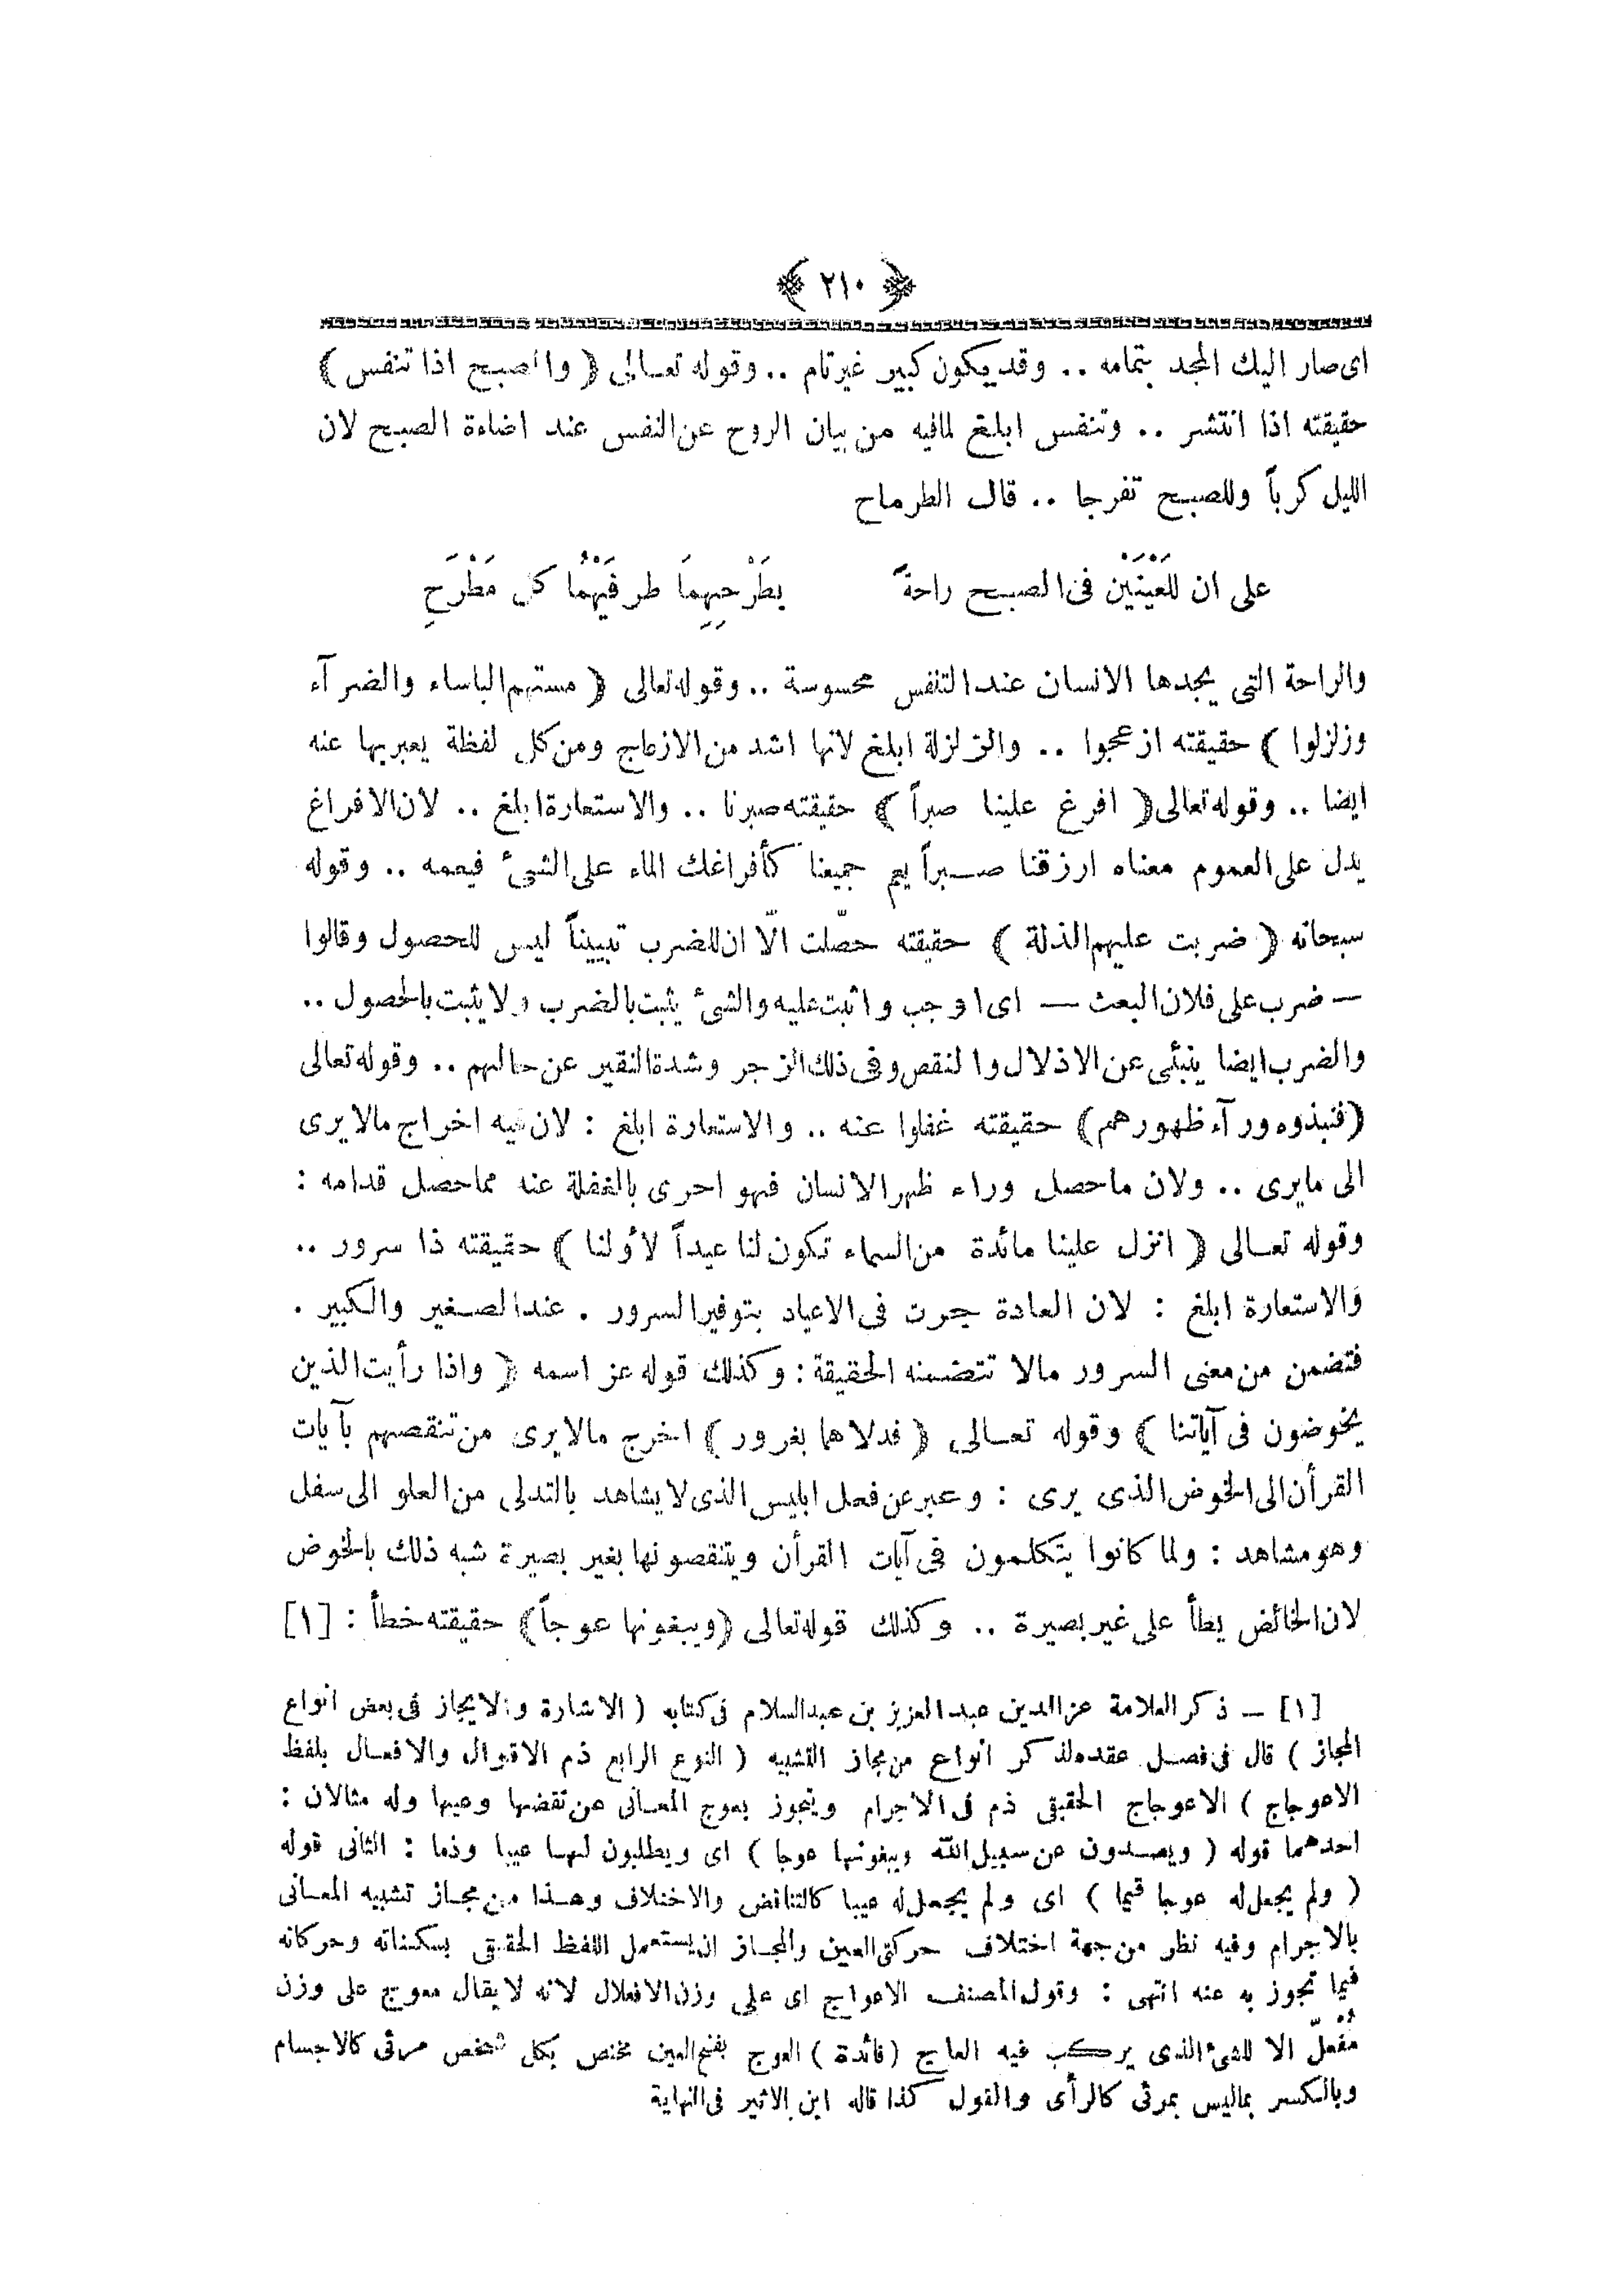 ﴿ ٢١٠ ﴾
اى صار اليك المجد بتمامه .. وقد يكون كبير غير تام .. وقوله تعالى ( والصبح اذا تنفس )
حقيقته اذا انتشر .. وتنفس ابلغ لمافيه من بيان الروح عن النفس عند اضاءة الصبح لان
الليل كرباً وللصبح تفرجا .. قال الطرماح
على ان للعَيْنَيْن فى الصبح راحةً بطَرْحِهِمَا طرفَيْهُمَا كل مَطْرَحِ
والراحة التى يجدها الانسان عند التنفس محسوسة .. وقوله تعالى ( مستهم الباساء والضرآء
وزلزلوا ) حقيقته ازعجوا .. والزلزلة ابلغ لانها اشد من الازعاج ومن كل لفظة يعبر بها عنه
ايضا .. وقوله تعالى ( افرغ علينا صبراً ) حقيقته صبرنا .. والاستعارة ابلغ .. لان الافراغ
يدل على العموم معناه ارزقنا صبراً يعم جميعنا كأفراغك الماء على الشئ فيعمه .. وقوله
سبحانه ( ضربت عليهم الذلة ) حقيقته حصّلت الّا ان للضرب تبييناً ليس للحصول وقالوا
— ضرب على فلان البعث — اى اوجب واثبت عليه والشئ يثبت بالضرب ولا يثبت بالحصول ..
والضرب ايضا ينبئى عن الاذلال والنقص وفى ذلك الزجر وشدة النقير عن حالهم .. وقوله تعالى
( فنبذوه ورآء ظهورهم ) حقيقته غفلوا عنه .. والاستعارة ابلغ : لان فيه اخراج مالا يرى
الى مايرى .. ولان ماحصل وراء ظهر الانسان فهو احرى بالغفلة عنه مما حصل قدامه :
وقوله تعالى ( انزل علينا مائدة من السماء تكون لنا عيداً لأولنا ) حقيقته ذا سرور ..
والاستعارة ابلغ : لان العادة جرت فى الاعياد بتوفير السرور . عند الصغير والكبير .
فتضمن من معنى السرور مالا تتضمنه الحقيقة : وكذلك قوله عز اسمه ( واذا رأيت الذين
يخوضون فى آياتنا ) وقوله تعالى ( فدلاهما بغرور ) اخرج مالايرى من تنقصهم بآيات
القرأن الى الخوض الذى يرى : وعبر عن فعل ابليس الذى لا يشاهد بالتدلى من العلو الى سفل
وهو مشاهد : ولما كانوا يتكلمون فى آيات القرأن ويتنقصونها بغير بصيرة شبه ذلك بالخوض
لان الخائض يطأ على غير بصيرة .. وكذلك قوله تعالى ( ويبغونها عوجاً ) حقيقته خطأ : [١]
[١] — ذكر العلامة عز الدين عبد العزيز بن عبد السلام فى كتابه ( الاشارة والايجاز فى بعض انواع
المجاز ) قال فى فصل عقده لذكر انواع من مجاز التشبيه ( النوع الرابع ذم الاقوال والافعال بلفظ
الاعوجاج ) الاعوجاج الحقيقى ذم فى الاجرام ويتجوز بعوج المعانى عن نقضها وعيبها وله مثالان :
احدهما قوله ( ويصدون عن سبيل الله ويبغونها عوجا ) اى ويطلبون لها عيبا وذما : الثانى قوله
( ولم يجعل له عوجا قيما ) اى ولم يجعل له عيبا كالتناقض والاختلاف وهذا من مجاز تشبيه المعانى
بالاجرام وفيه نظر من جهة اختلاف حركتى العين والمجاز ان يستعمل اللفظ الحقيقى بسكناته وحركاته
فيما تجوز به عنه انتهى : وقول المصنف الاعواج اى على وزن الافعلال لانه لا يقال معوج على وزن
مُفعَلّ الا للشئ الذى يركب فيه العاج ( فائدة ) العوج بفتح العين مختص بكل شخص مرئى كالاجسام
وبالكسر بماليس بمرئى كالرأى والقول كذا قاله ابن الاثير فى النهاية